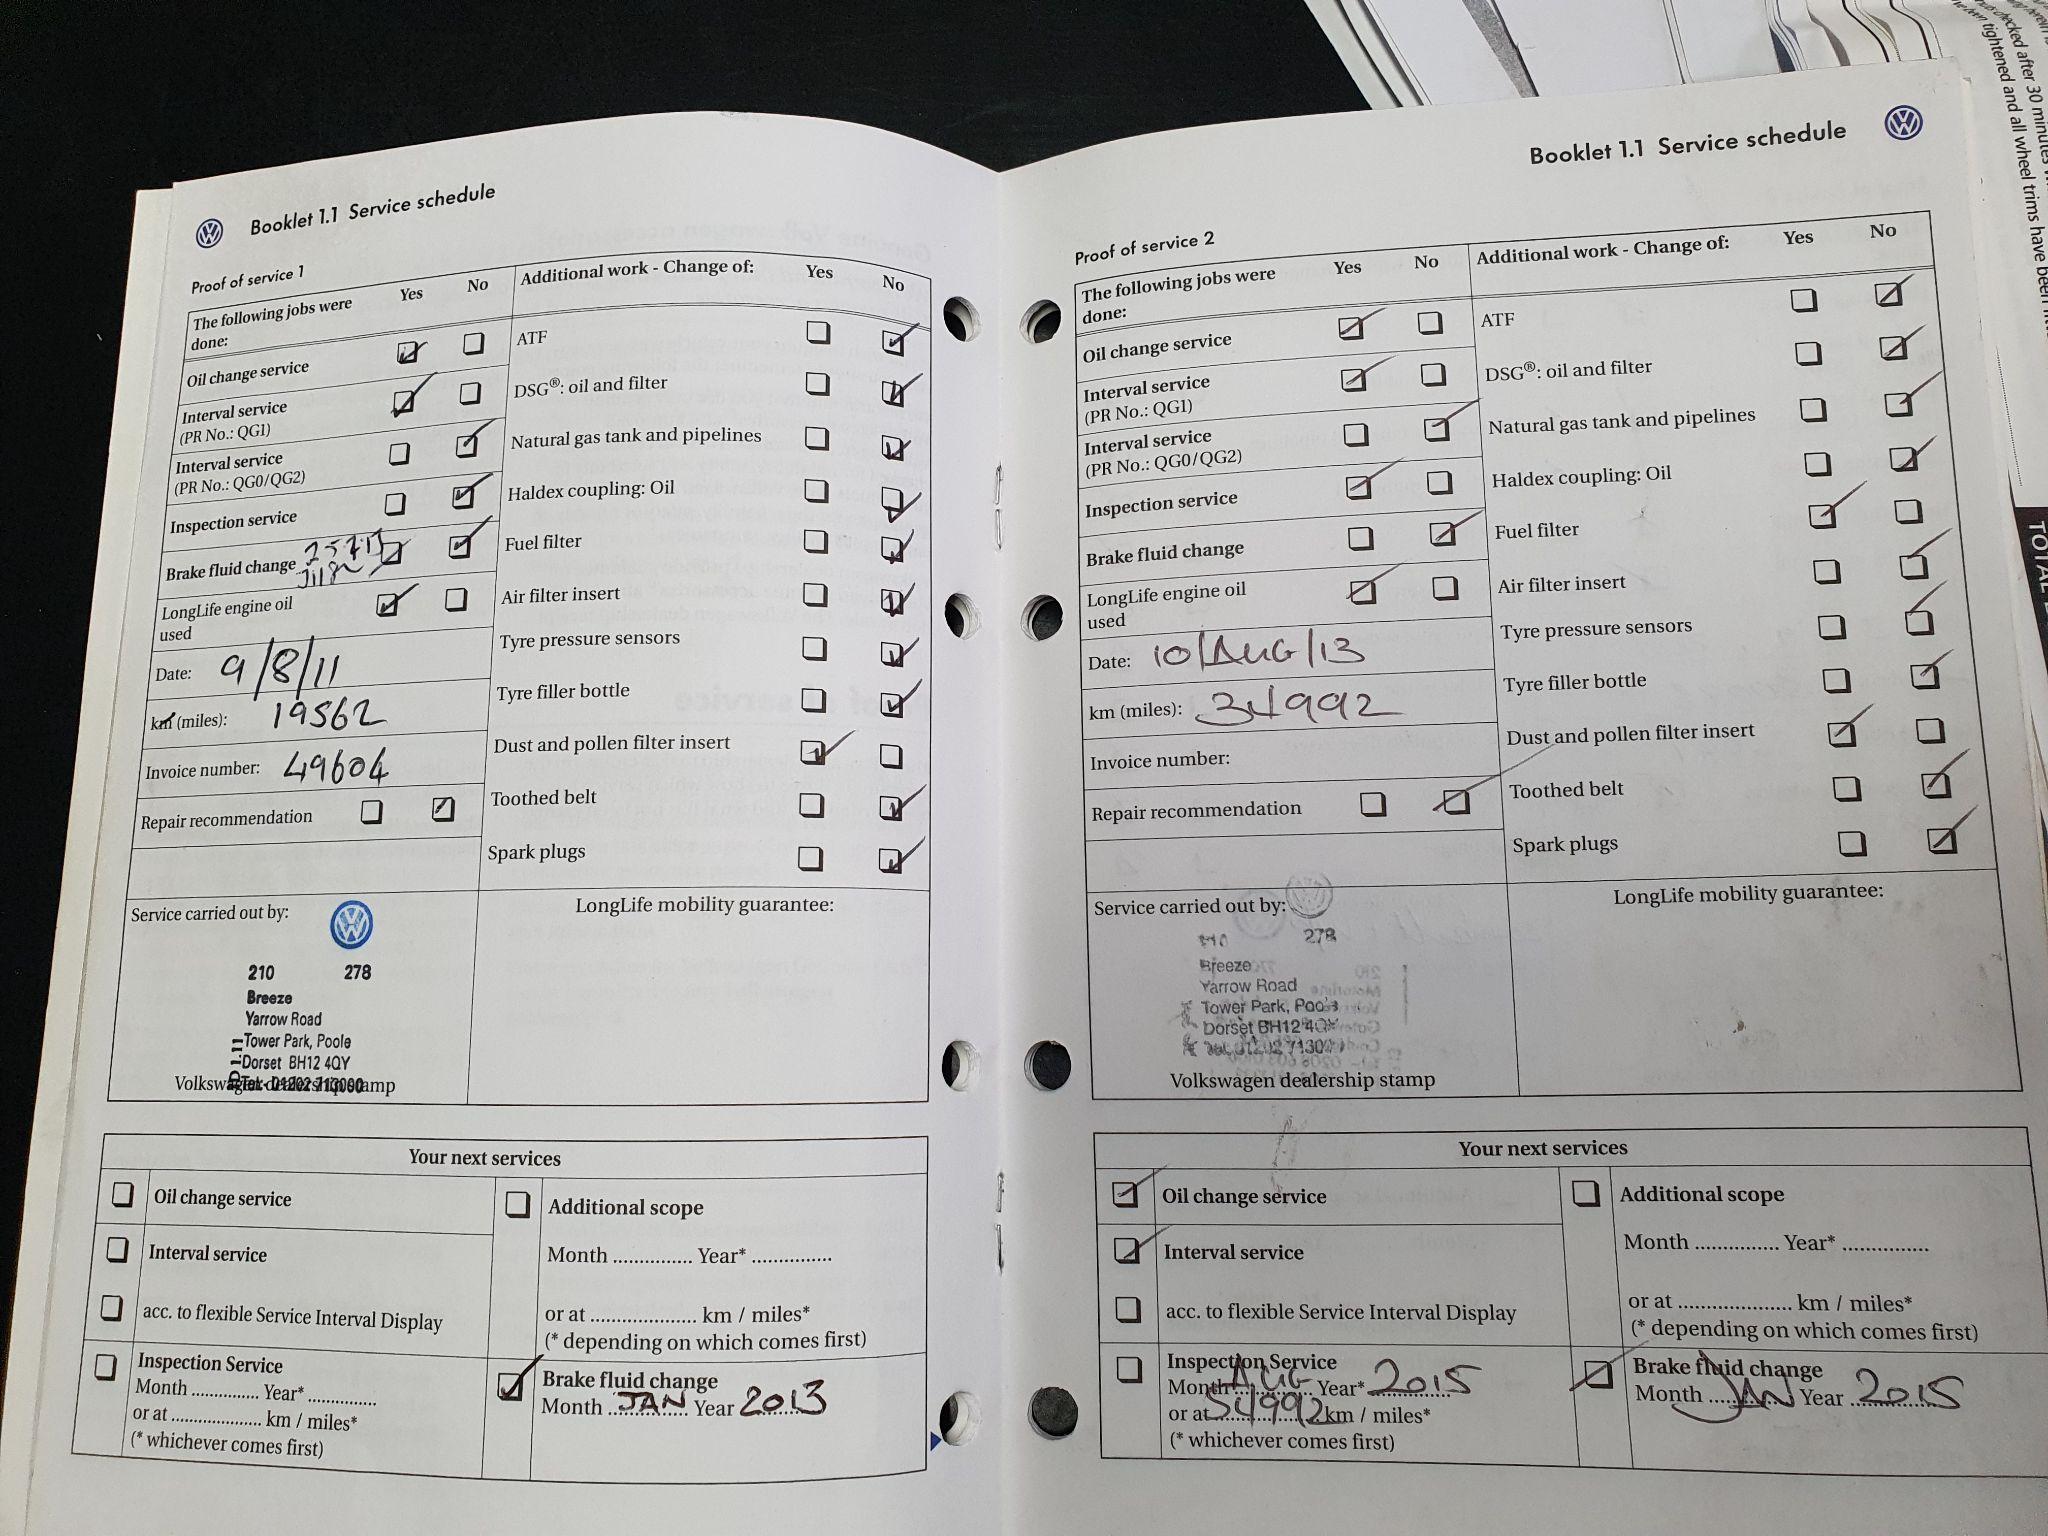 Booklet 1.1 Service schedule
Proof of service 1
The following jobs were done: Yes No
Oil change service
Interval service
(PR No.: QG1)
Interval service
(PR No.: QG0/QG2)
Inspection service
Brake fluid change
LongLife engine oil
used
Date: 9/8/11
km (miles): 19562
Invoice number: 49604
Repair recommendation
Additional work - Change of: Yes No
ATF
DSG®: oil and filter
Natural gas tank and pipelines
Haldex coupling: Oil
Fuel filter
Air filter insert
Tyre pressure sensors
Tyre filler bottle
Dust and pollen filter insert
Toothed belt
Spark plugs
Service carried out by:
210 278
Breeze
Yarrow Road
Tower Park, Poole
Dorset BH12 4QY
Tel: 01202 713000
Volkswagen dealership stamp
LongLife mobility guarantee:
Your next services
Oil change service
Interval service
acc. to flexible Service Interval Display
Inspection Service
Month .............. Year* ..............
or at ................... km / miles*
(* whichever comes first)
Additional scope
Month ............... Year* ...............
or at .................... km / miles*
(* depending on which comes first)
Brake fluid change
Month JAN Year 2013
Booklet 1.1 Service schedule
Proof of service 2
The following jobs were done: Yes No
Oil change service
Interval service
(PR No.: QG1)
Interval service
(PR No.: QG0/QG2)
Inspection service
Brake fluid change
LongLife engine oil
used
Date: 10/AUG/13
km (miles): 34992
Invoice number:
Repair recommendation
Additional work - Change of: Yes No
ATF
DSG®: oil and filter
Natural gas tank and pipelines
Haldex coupling: Oil
Fuel filter
Air filter insert
Tyre pressure sensors
Tyre filler bottle
Dust and pollen filter insert
Toothed belt
Spark plugs
Service carried out by:
278
Breeze
Yarrow Road
Tower Park, Poole
Dorset BH12 4QY
Volkswagen dealership stamp
LongLife mobility guarantee:
Your next services
Oil change service
Interval service
acc. to flexible Service Interval Display
Inspection Service
Month AUG Year* 2015
or at 54992 km / miles*
(* whichever comes first)
Additional scope
Month ............... Year* ...............
or at .................... km / miles*
(* depending on which comes first)
Brake fluid change
Month JAN Year 2015
checked after 30 minutes
tightened and all wheel trims have been
TOTAL